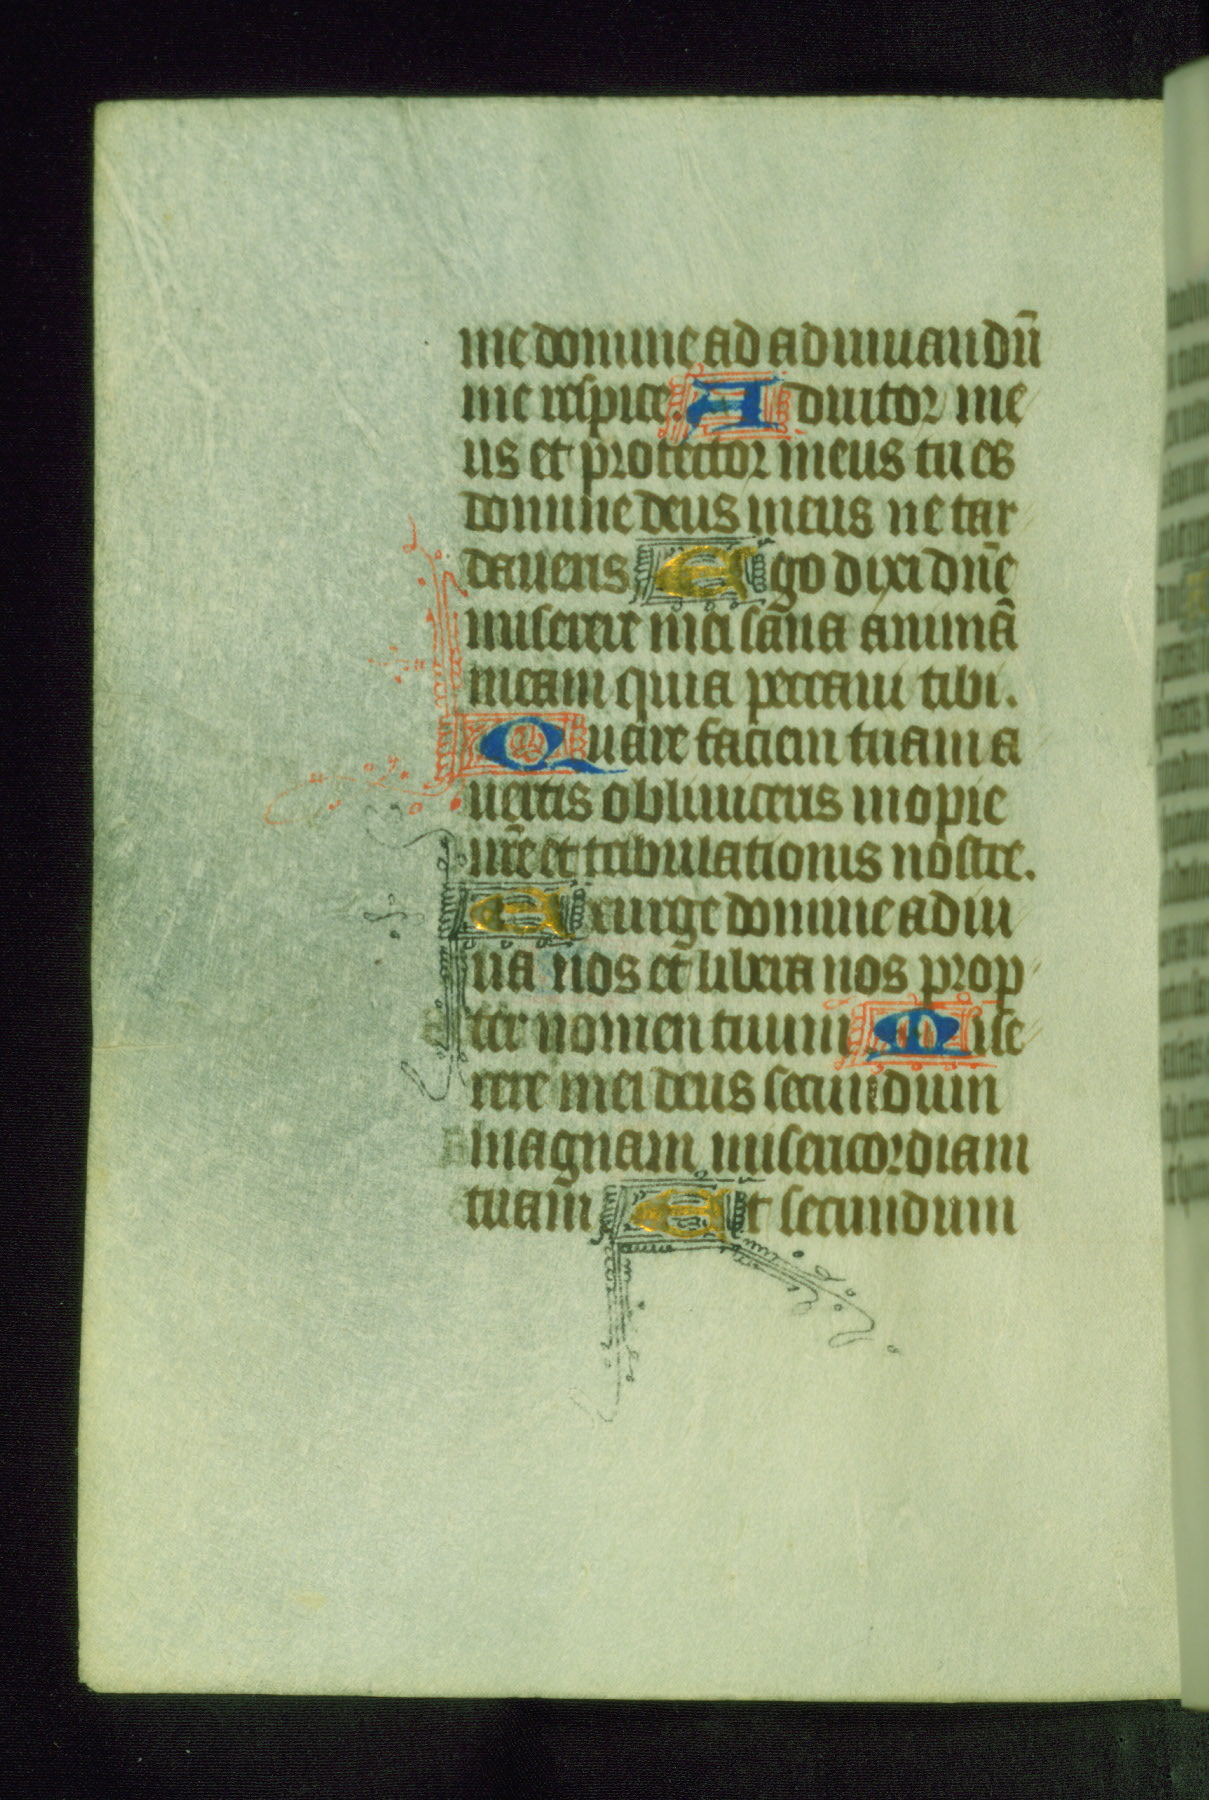 me domine ad adiuuandū
me respice. Adiutor me
us et protector meus tu es
domine deus meus ne tar
daueris Ego dixi dn̄e
miserere mei sāna animā
meam quia peccaui tibi.
Quare faciem tuam a
uertis obliuisceris inopie
nr̄e et tribulationis nostre.
Exurge domine adiu
ua nos et libera nos prop
ter nomen tuum Mise
rere mei deus secundum
magnam misericordiam
tuam Et secundum